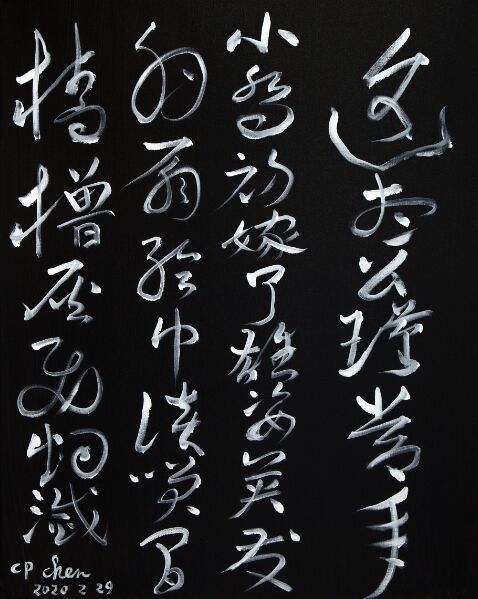 遙想公瑾當年
小喬初嫁了雄姿英發
羽扇綸巾談笑間
檣櫓灰飛煙滅
CP chen
2020 2 29